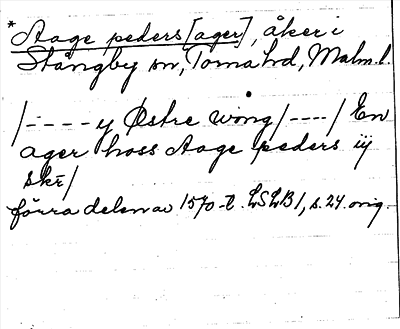 *Aage peders [ager], åker i
Stångby sn, Torna hd, Malm. l.
/---- y Østre wong/----/ En
ager hoss Aage peders iij
skr̄/
förra delen av 1570-t. LSLB1, s. 24. orig.